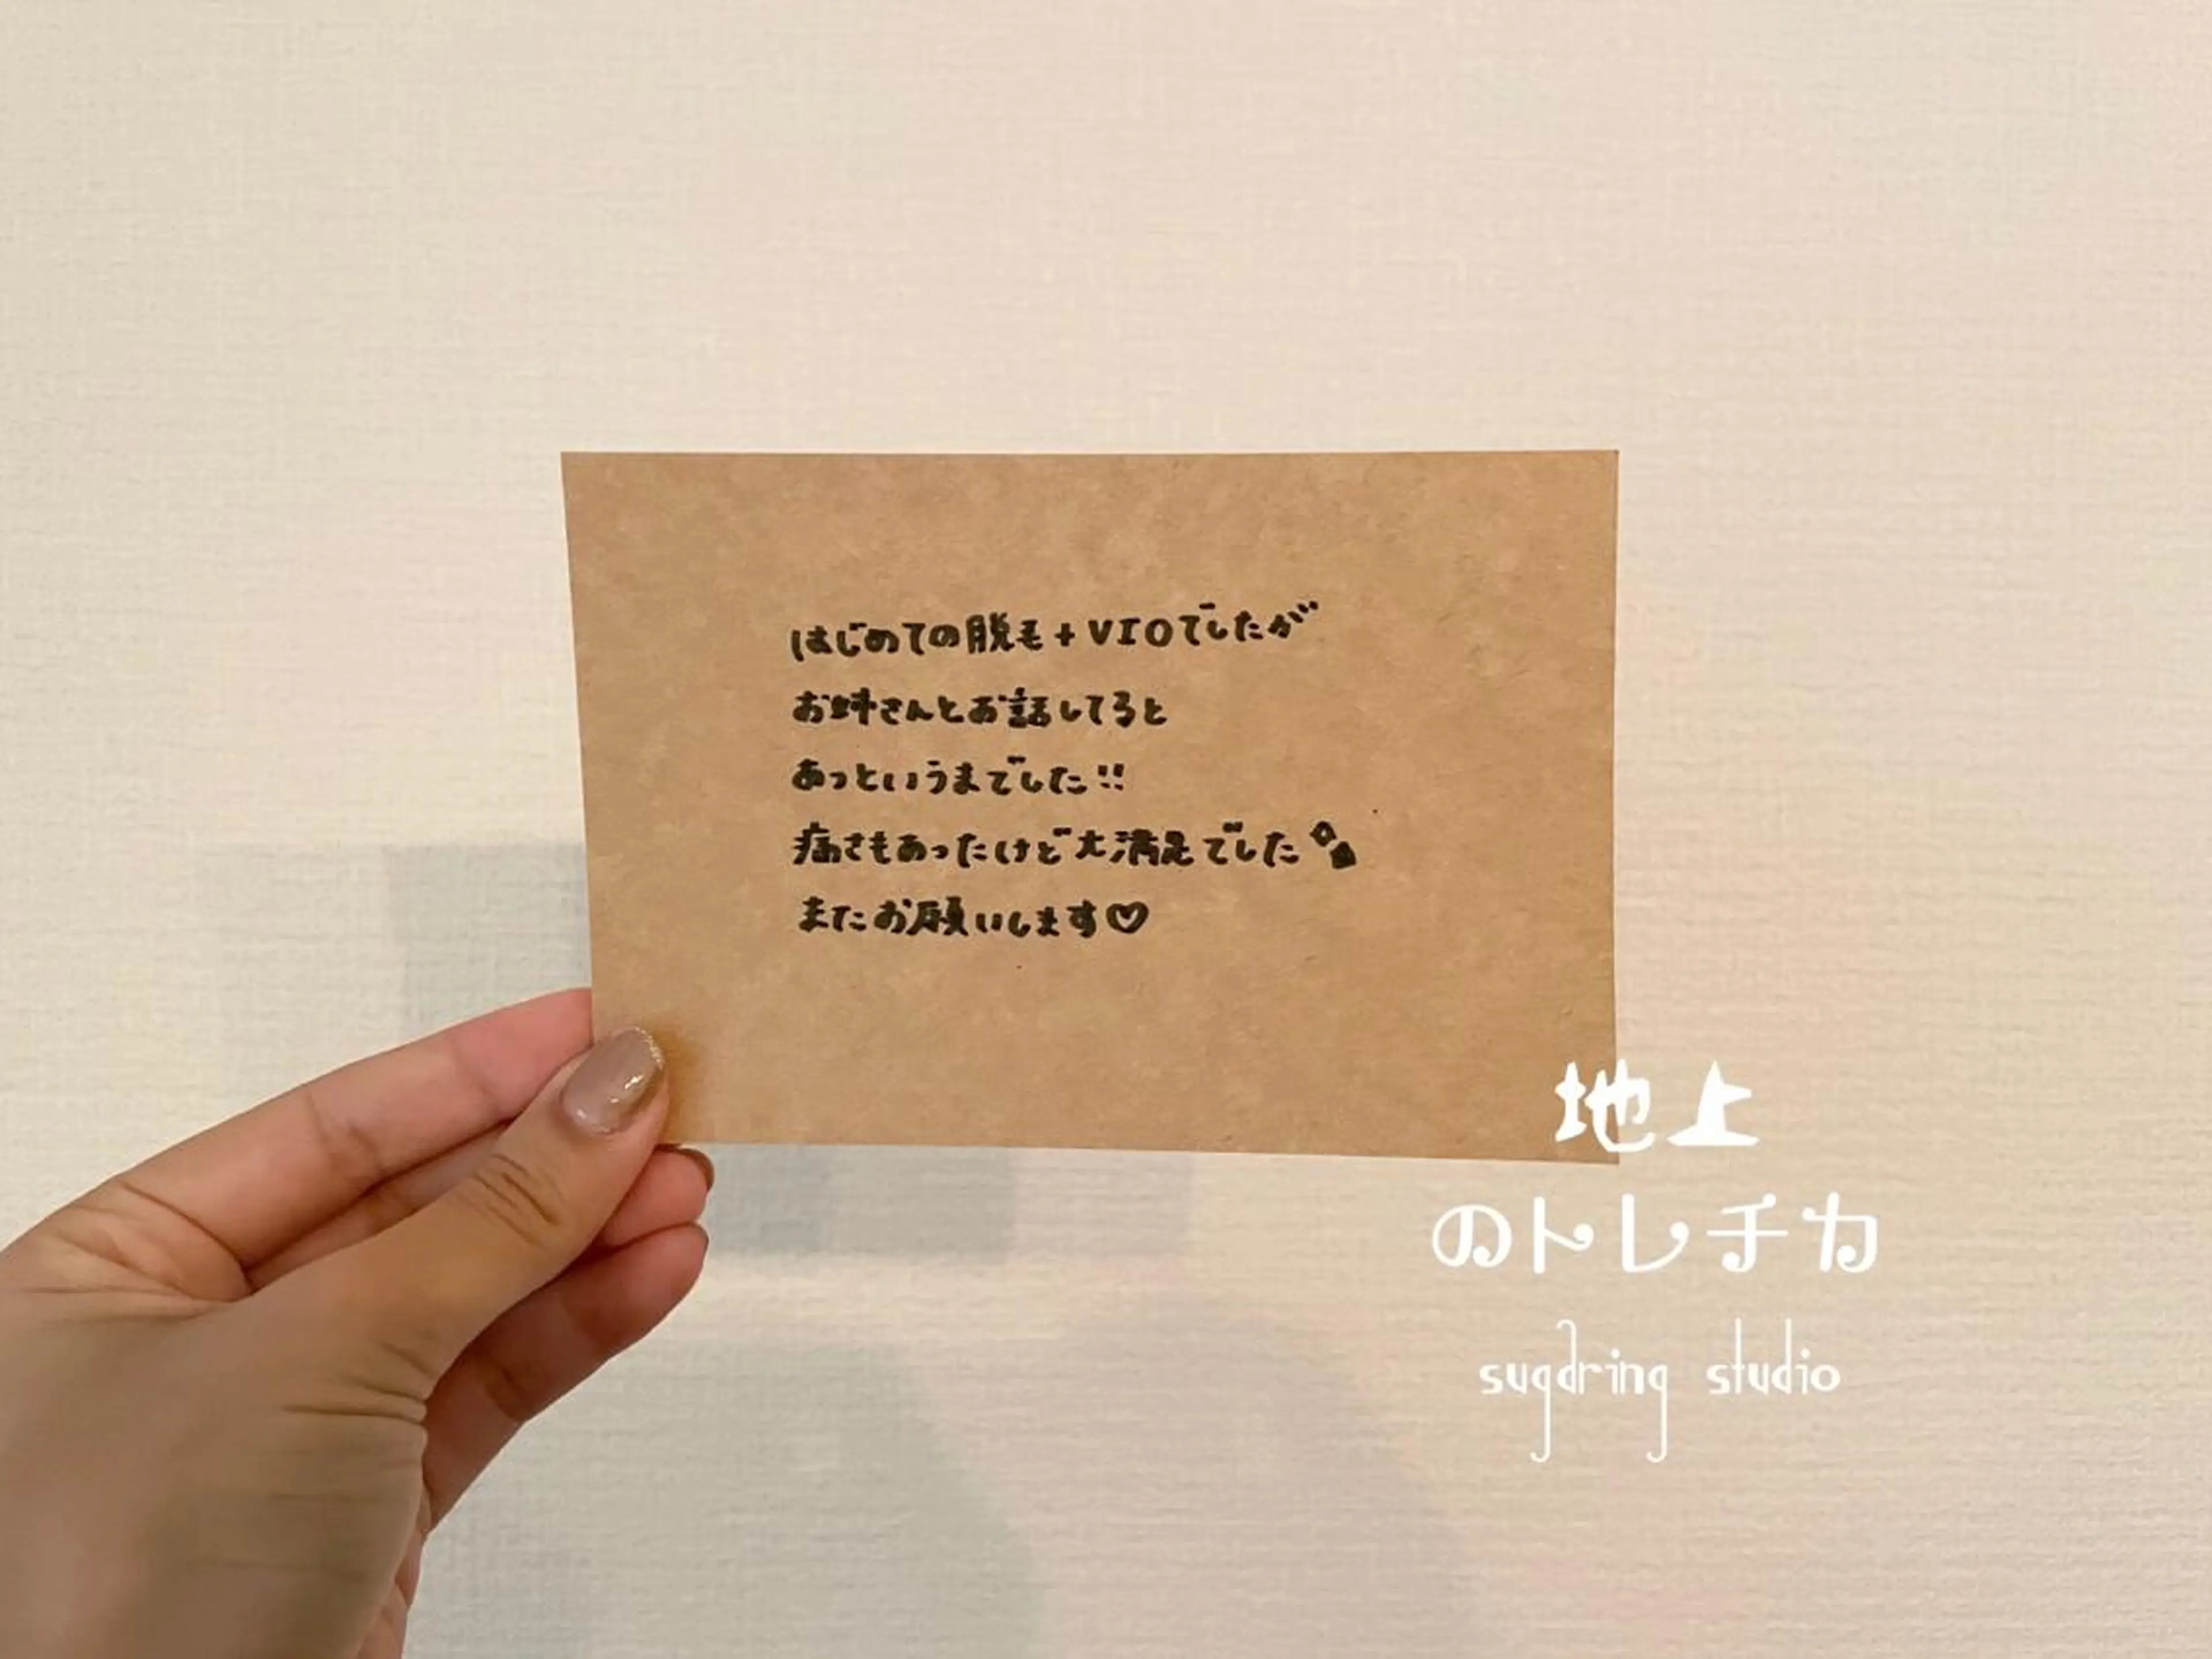 はじめての脱毛+VIOでしたが
お姉さんとお話してると
あっというまでした!!
痛さもあったけど大満足でした
またお願いします♡
地上
のトレチカ
sugdring studio